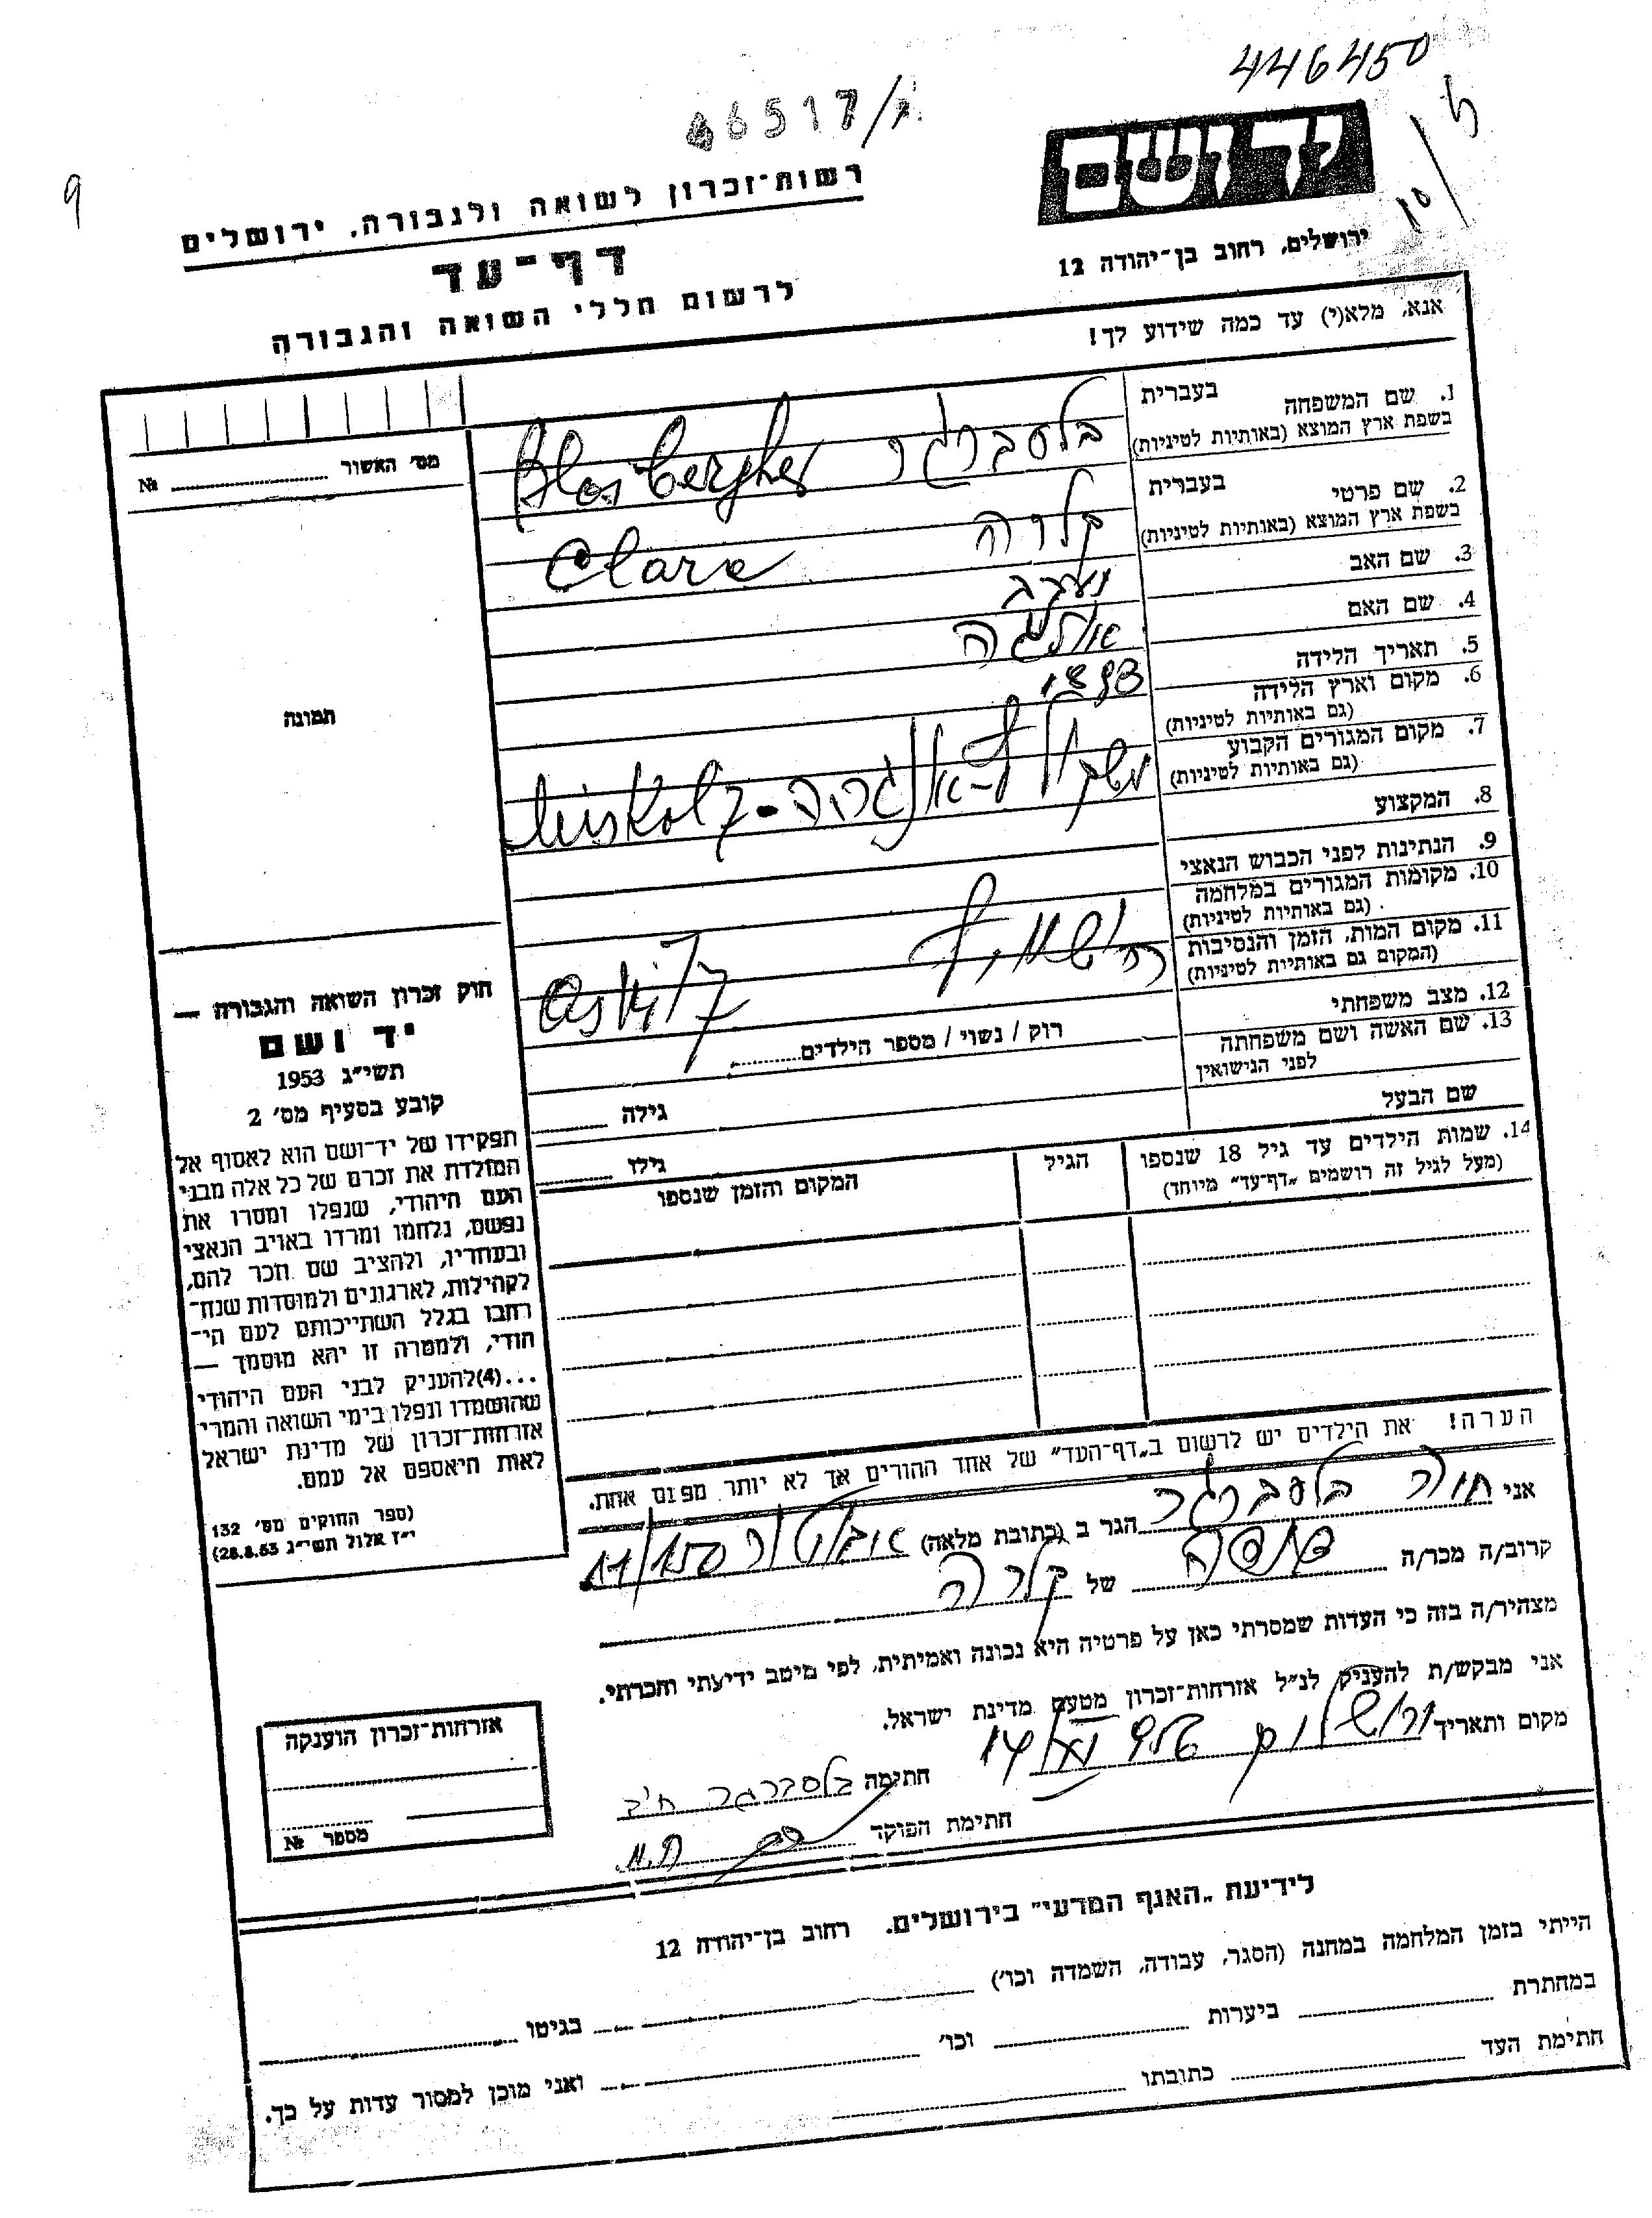 446450
46517/
9
יד ושם
ירושלים, רחוב בן־יהודה 12
רשות־זכרון לשואה ולגבורה, ירושלים
דף־עד
לרשום חללי השואה והגבורה
אנא, מלא(י) עד כמה שידוע לך!
1. שם המשפחה בעברית
בשפת ארץ המוצא (באותיות לטיניות)
בלסברגר
2. שם פרטי בעברית
בשפת ארץ המוצא (באותיות לטיניות)
קלרה Clara
3. שם האב
יעקב
4. שם האם
5. תאריך הלידה
1893
6. מקום וארץ הלידה
(גם באותיות לטיניות)
7. מקום המגורים הקבוע
(גם באותיות לטיניות)
8. המקצוע
9. הנתינות לפני הכבוש הנאצי
10. מקומות המגורים במלחמה
(גם באותיות לטיניות)
11. מקום המות, הזמן והנסיבות
(המקום גם באותיות לטיניות)
12. מצב משפחתי
רוק / נשוי / מספר הילדים
13. שם האשה ושם משפחתה
לפני הנישואין
גילה
שם הבעל
גילו
14. שמות הילדים עד גיל 18 שנספו
(מעל לגיל זה רושמים „דף־עד” מיוחד)
הגיל
המקום והזמן שנספו
מס׳ האשור № 
תמונה
חוק זכרון השואה והגבורה —
יד ושם
תשי״ג 1953
קובע בסעיף מס׳ 2
תפקידו של יד־ושם הוא לאסוף אל
המולדת את זכרם של כל אלה מבני
העם היהודי, שנפלו ומסרו את
נפשם, נלחמו ומרדו באויב הנאצי
ובעוזריו, ולהציב שם וזכר להם,
לקהילות, לארגונים ולמוסדות שנח־
רבו בגלל השתייכותם לעם הי־
הודי, ולמטרה זו יהא מוסמך —
...(4)להעניק לבני העם היהודי
שהושמדו ונפלו בימי השואה והמרי
אזרחות־זכרון של מדינת ישראל
לאות היאספם אל עמם.
(ספר החוקים מס׳ 132
י״ז אלול תשי״ג 28.8.53)
הערה! את הילדים יש לרשום ב„דף־העד” של אחד ההורים אך לא יותר מפעם אחת.
אני חוה בלסברגר הגר ב (כתובת מלאה)
קרוב/ה מכר/ה של קלרה
מצהיר/ה בזה כי העדות שמסרתי כאן על פרטיה היא נכונה ואמיתית, לפי מיטב ידיעתי והכרתי.
אני מבקש/ת להעניק לנ״ל אזרחות־זכרון מטעם מדינת ישראל.
מקום ותאריך ירושלים
חתימה בלסברגר
חתימת הפוקד
אזרחות־זכרון הוענקה
מספר №
לידיעת „האגף המדעי” בירושלים. רחוב בן־יהודה 12
הייתי בזמן המלחמה במחנה (הסגר, עבודה, השמדה וכו׳) בגיטו
במחתרת ביערות וכו׳ ואני מוכן למסור עדות על כך.
חתימת העד כתובתו